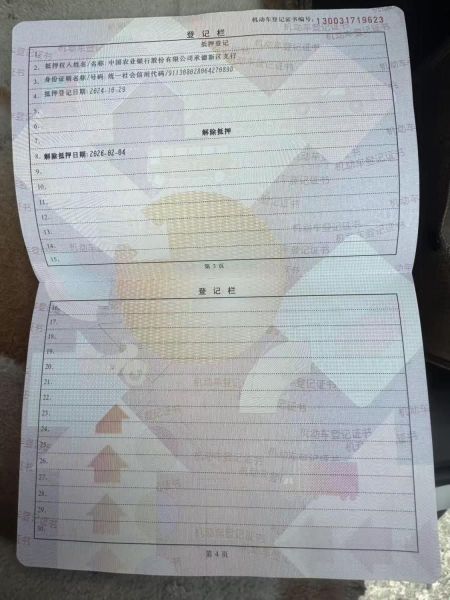 机动车登记证书编号:130031719623
登记栏
抵押登记
1.
2. 抵押权人姓名/名称:中国农业银行股份有限公司承德新区支行
3. 身份证明名称/号码:统一社会信用代码/911308028064276890
4. 抵押登记日期:2024-10-29
5.
6.
7. 解除抵押
8. 解除抵押日期:2026-02-04
9.
10.
11.
12.
13.
14.
15.
第3页
登记栏
16.
17.
18.
19.
20.
21.
22.
23.
24.
25.
26.
27.
28.
29.
30.
第4页